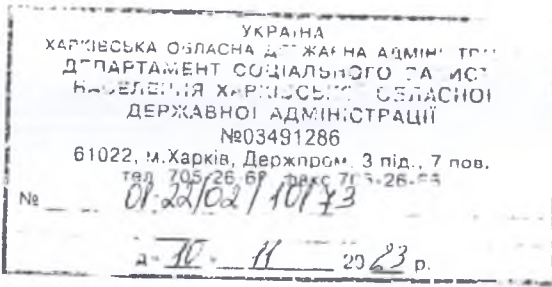 УКРАЇНА
ХАРКІВСЬКА ОБЛАСНА ДЕРЖАВНА
ДЕПАРТАМЕНТ СОЦІАЛЬНОГО
НАСЕЛЕННЯ ХАРКІВСЬКОЇ ОБЛАСНОЇ
ДЕРЖАВНОЇ АДМІНІСТРАЦІЇ
№03491286
61022, м.Харків, Держпром, 3 під., 7 пов.
тел. 705-26-68 факс
№ 01-22/02/
10 11 2023 р.